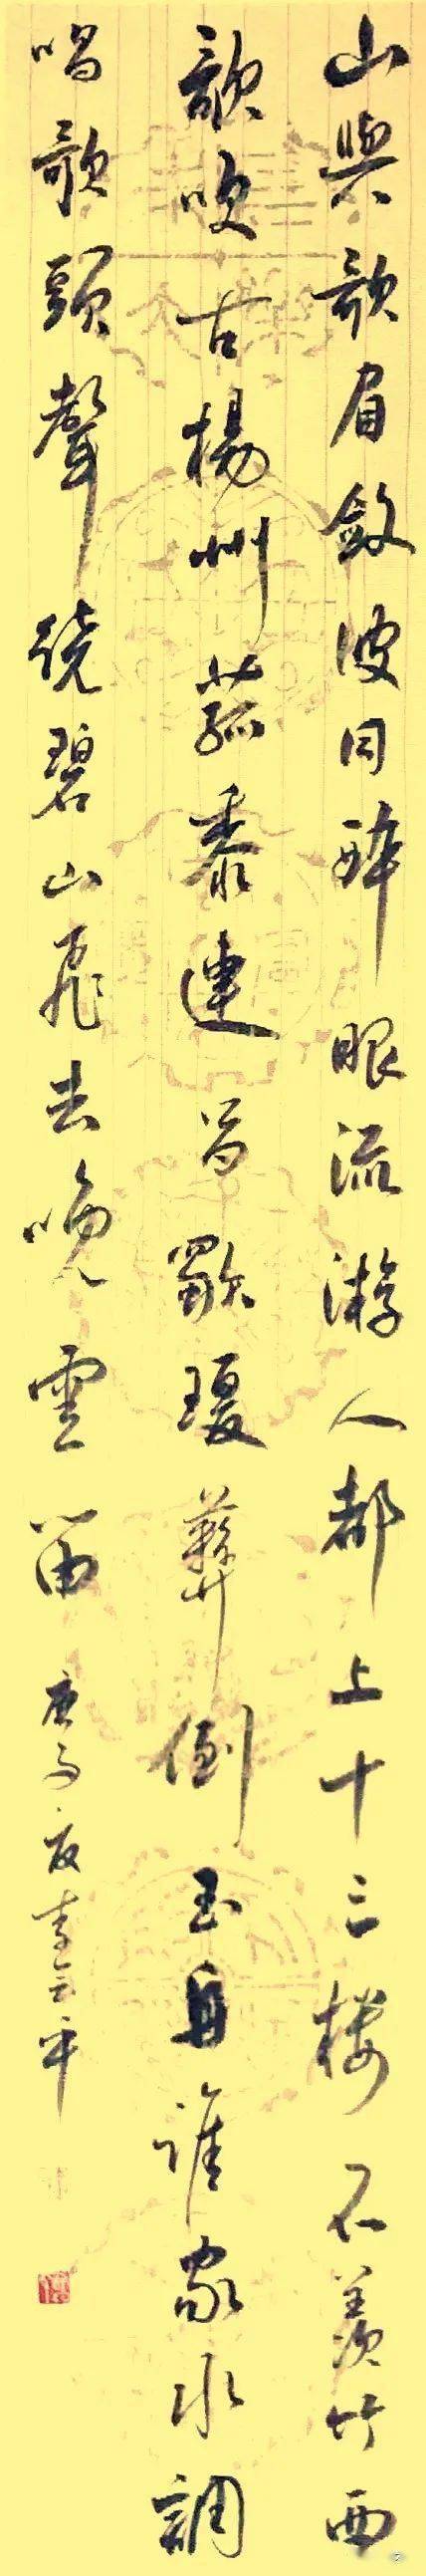 山與歌眉斂波同醉眼流游人都上十三樓不羨竹西
歌吹古楊州菰黍連昌歜瓊彝倒玉舟誰家水調
唱歌頭聲繞碧山飛去晚雲留 庚子夏